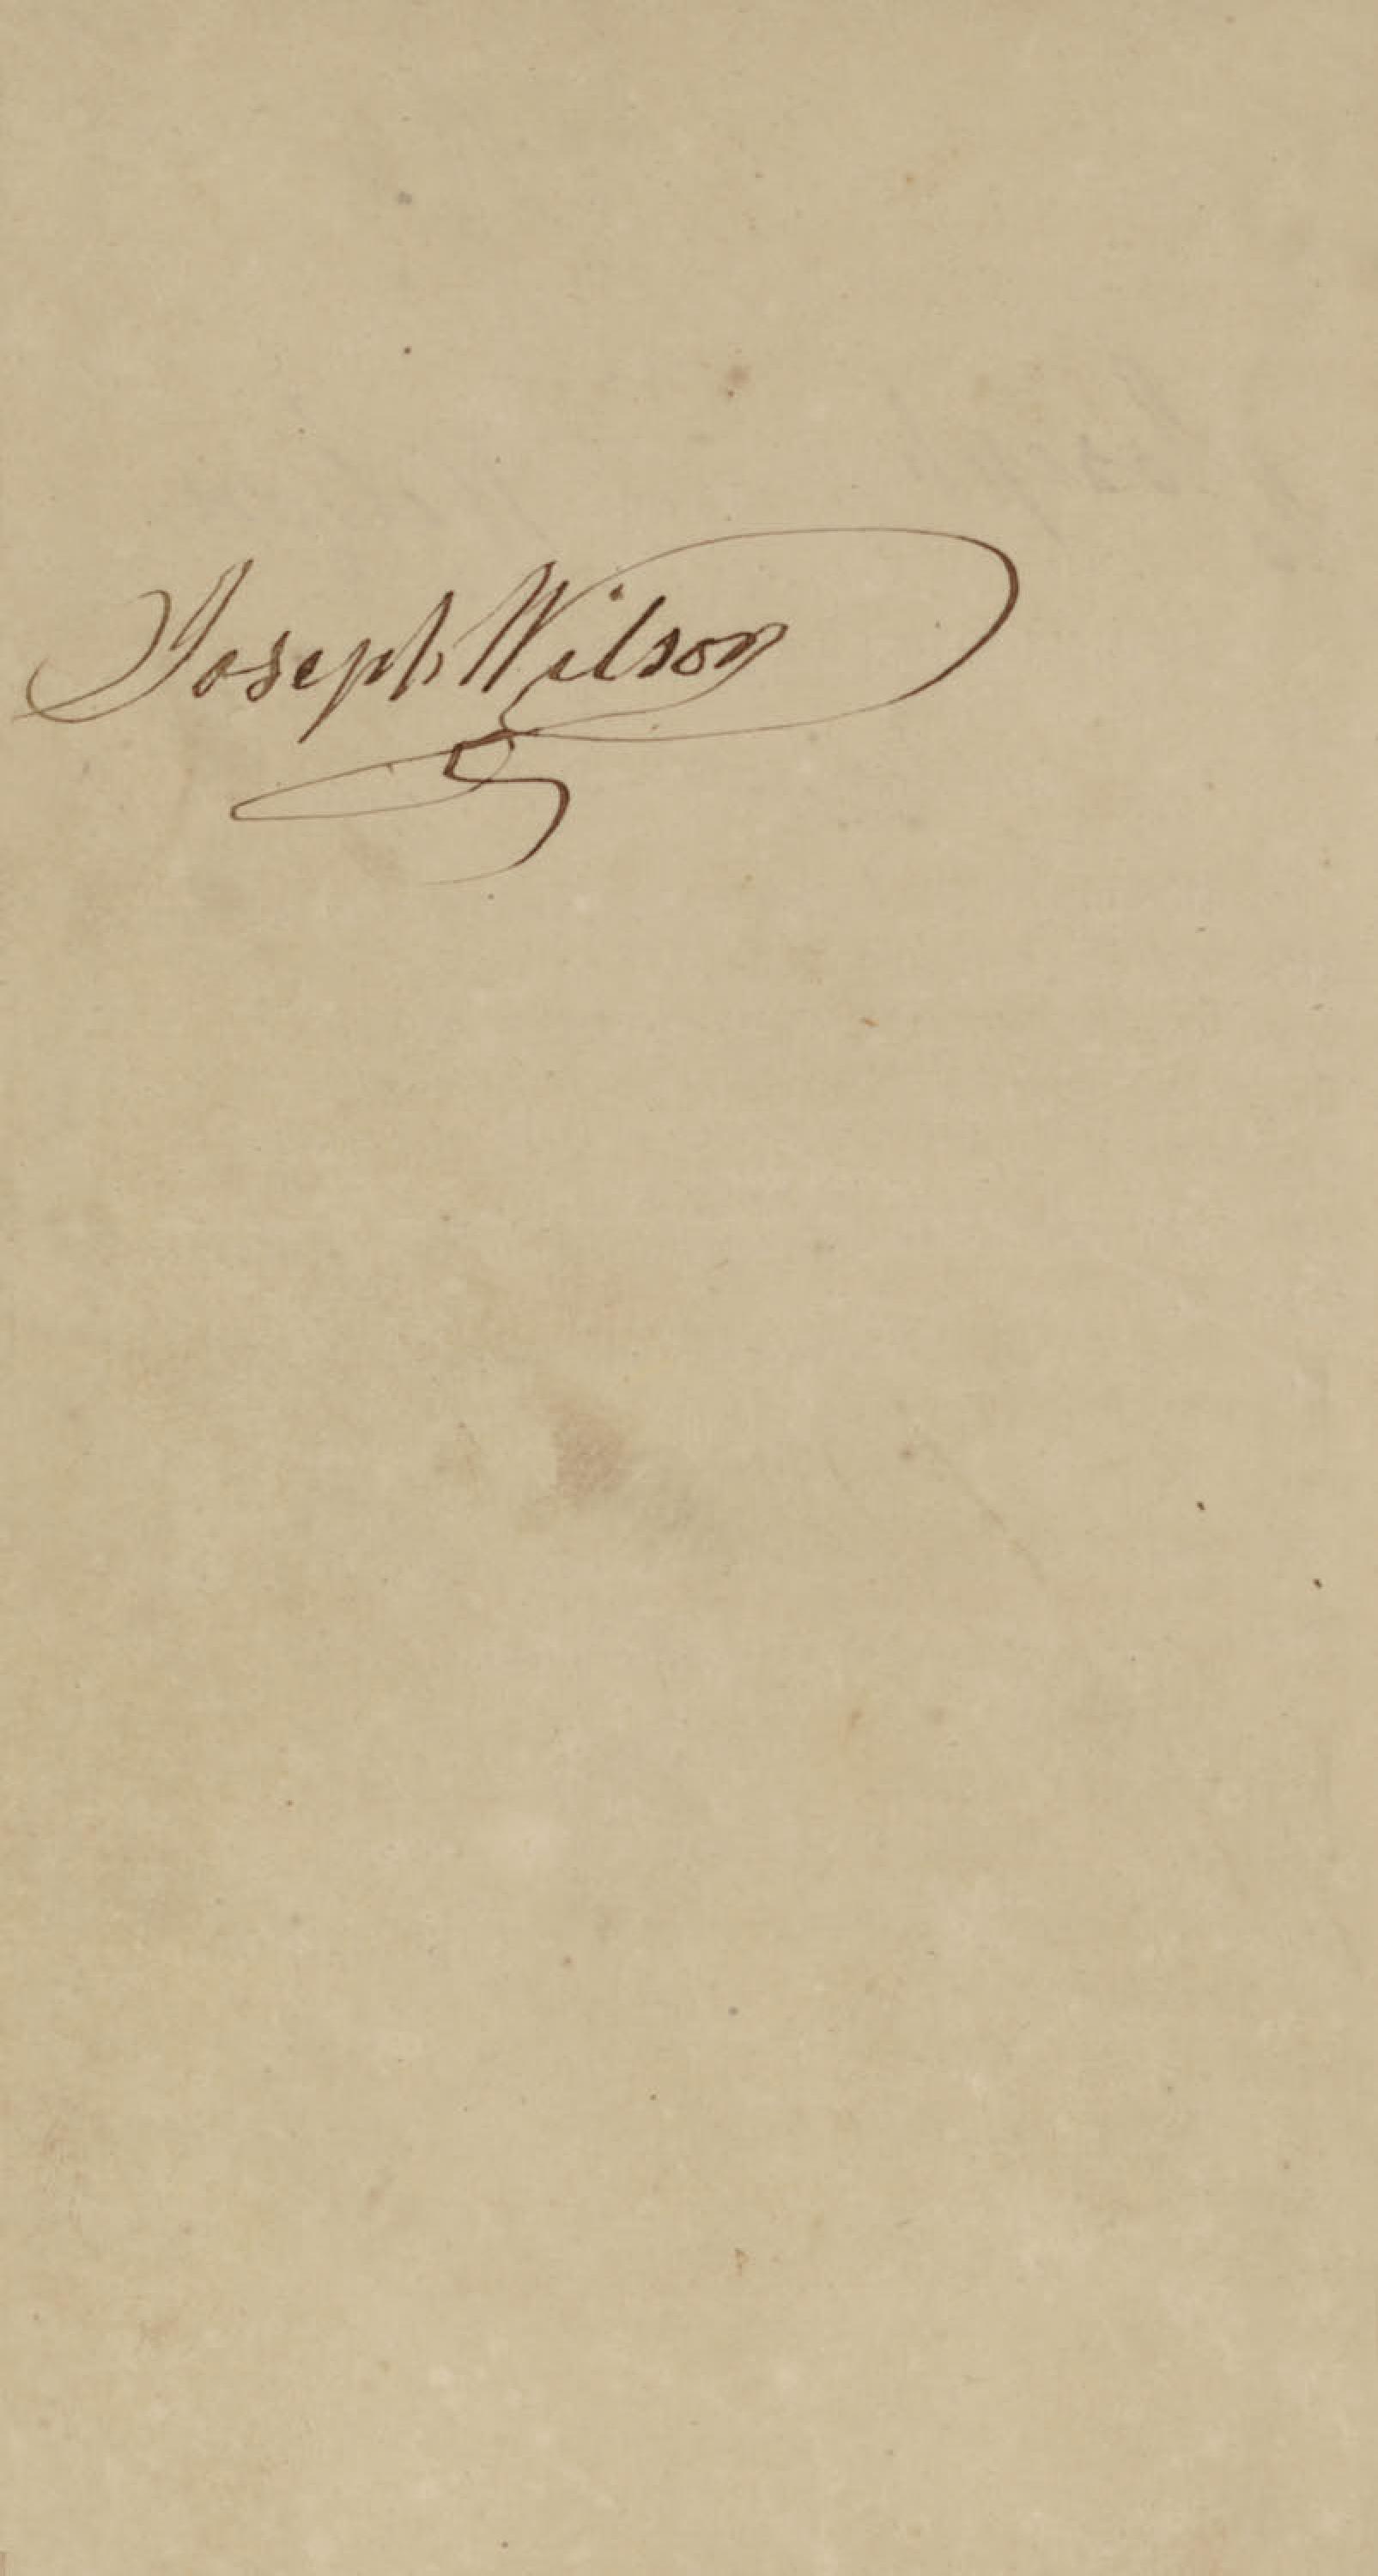 Joseph Wilson